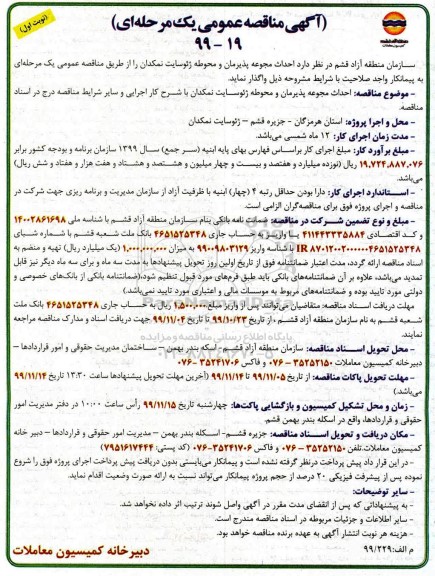 (نوبت اول)
(آگهی مناقصه عمومی یک مرحله‌ای)
۱۹ - ۹۹
سازمان منطقه آزاد قشم در نظر دارد احداث مجوعه پذیرمان و محوطه ژئوسایت نمکدان را از طریق مناقصه عمومی یک مرحله‌ای
به پیمانکار واجد صلاحیت با شرایط مشروحه ذیل واگذار نماید.
- موضوع مناقصه: احداث مجوعه پذیرمان و محوطه ژئوسایت نمکدان با شرح کار اجرایی و سایر شرایط مناقصه درج در اسناد
مناقصه.
- محل و اجرا پروژه: استان هرمزگان - جزیره قشم – ژئوسایت نمکدان
- مدت زمان اجرای کار: ۱۲ ماه شمسی می‌باشد.
- مبلغ برآورد کار: مبلغ اجرای کار براساس فهارس بهای پایه ابنیه (سر جمع) سال ۱۳۹۹ سازمان برنامه و بودجه کشور برابر
۱۹,۷۲۴,۸۸۷,۰۷۶ ریال (نوزده میلیارد و هفتصد و بیست و چهار میلیون و هشتصد و هشتاد و هفت هزار و هفتاد و شش ریال)
می‌باشد.
- استاندارد اجرای کار: دارا بودن حداقل رتبه ۴ (چهار) ابنیه با ظرفیت آزاد از سازمان مدیریت و برنامه ریزی جهت شرکت در
مناقصه و اجرای پروژه فوق برای مناقصه‌گران الزامی است.
- مبلغ و نوع تضمین شرکت در مناقصه: ضمانت نامه بانکی بنام سازمان منطقه آزاد قشم با شناسه ملی ۱۴۰۰۲۸۶۱۶۹۸
و کد اقتصادی ۴۱۱۴۴۳۳۳۵۸۸۴ یا واریز به حساب جاری ۴۶۵۱۵۲۵۳۴۸ بانک ملت شعبه قشم با شماره شبای
IR ۸۷۰۱۲۰۲۰۰۰۰۰۰۴۶۵۱۵۲۵۳۴۸ با شناسه واریز ۹۹۰۰۹۸۰۳۱۲۹ به میزان ۱,۰۰۰,۰۰۰,۰۰۰ (یک میلیارد ریال) تهیه و منضم به
اسناد مناقصه ارائه گردد، مدت اعتبار ضمانتنامه فوق از تاریخ اولین روز تحویل پیشنهادها به مدت سه ماه و برای سه ماه دیگر نیز قابل
تمدید می‌باشد، علاوه بر آن ضمانتنامه‌های بانکی باید طبق فرم‌های مورد قبول تنظیم شود.(ضمانتنامه بانکی از بانک‌های خصوصی و
دولتی مورد تایید بوده و ضمانتنامه‌های مربوط به موسسات مالی و اعتباری مورد تایید نمی‌باشد.)
مهلت دریافت اسناد مناقصه: متقاضیان می‌توانند پس از واریز مبلغ ۱,۵۰۰,۰۰۰ ریال به حساب جاری ۴۶۵۱۵۲۵۳۴۸ بانک ملت
شعبه قشم به نام سازمان منطقه آزاد قشم ، از تاریخ ۹۹/۱۰/۲۳ تا تاریخ ۹۹/۱۱/۰۴ جهت دریافت اسناد و مدارک مناقصه مراجعه
نمایند.
- محل تحویل اسناد مناقصه: سازمان منطقه آزاد قشم - اسکله بندر بهمن – ساختمان مدیریت حقوقی و امور قراردادها –
دبیرخانه کمیسیون معاملات ۳۵۲۵۲۱۵۰ – ۰۷۶ و فاکس ۳۵۲۴۱۷۰۶ - ۰۷۶
- مهلت تحویل پاکات مناقصه: از تاریخ ۹۹/۱۱/۰۵ تا تاریخ ۹۹/۱۱/۱۴ (آخرین مهلت تحویل پیشنهادها ساعت ۱۳:۳۰ تاریخ ۹۹/۱۱/۱۴
می‌باشد.)
- زمان و محل تشکیل کمیسیون و بازگشایی پاکت‌ها: چهارشنبه تاریخ ۹۹/۱۱/۱۵ رأس ساعت ۱۰:۰۰ در دفتر مدیریت امور
حقوقی و قراردادها، واقع در اسکله بندر بهمن قشم.
- مکان دریافت و تحویل اسناد مناقصه: جزیره قشم- اسکله بندر بهمن – مدیریت امور حقوقی و قراردادها – دبیر خانه
کمیسیون معاملات.تلفن ۳۵۲۵۲۱۵۰ – ۰۷۶ و فاکس ۳۵۲۴۱۷۰۶-۰۷۶ (کد پستی: ۷۹۵۱۶۱۷۴۴۴)
- در این قرار داد پیش پرداخت درنظر گرفته نشده است و پیمانکار می‌بایستی بدون دریافت پیش پرداخت اجرای پروژه فوق را شروع
نموده پس از پیشرفت فیزیکی ۲۰ درصد از حجم پروژه پیمانکار می‌تواند نسبت به ارائه صورت وضعیت اقدام نماید.
- سایر توضیحات:
- به پیشنهاداتی که پس از انقضای مدت مقرر در آگهی واصل شوند ترتیب اثر داده نخواهد شد.
- سایر اطلاعات و جزئیات مربوطه در اسناد مناقصه مندرج است.
- هزینه هر نوبت انتشار آگهی به عهده برنده مناقصه خواهد بود.
م الف:۹۹/۲۲۹
دبیرخانه کمیسیون معاملات